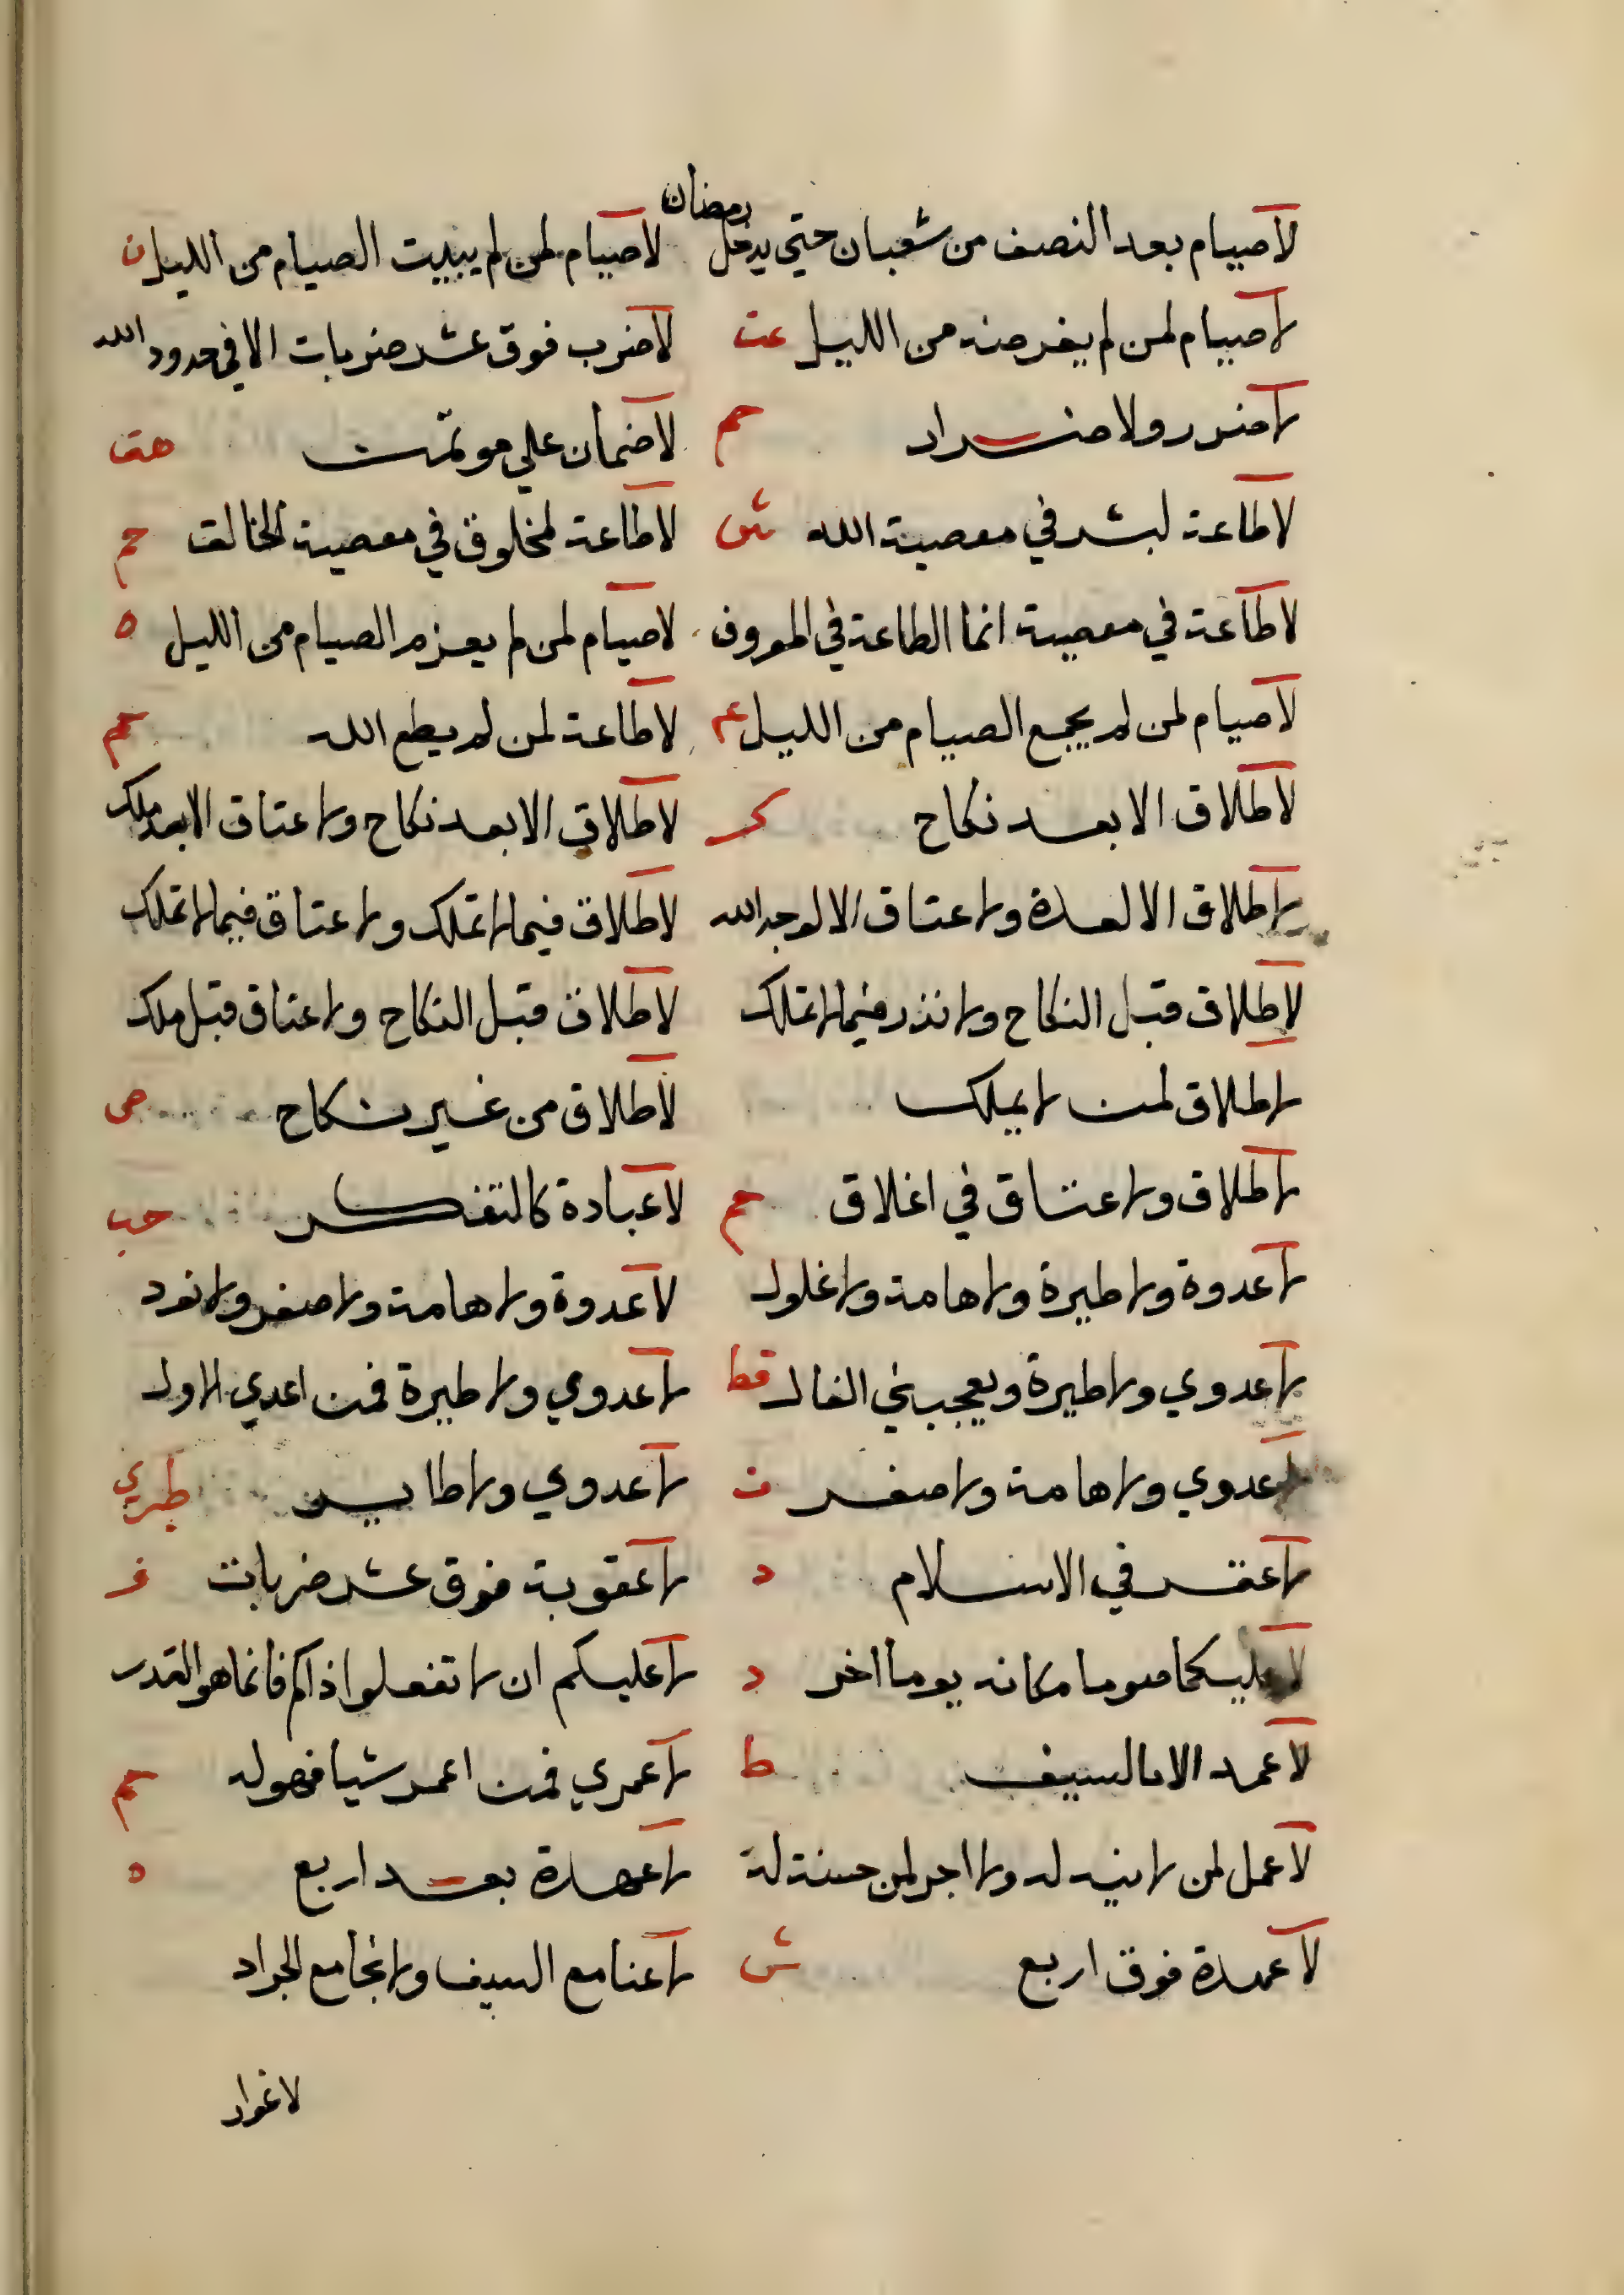 لا صيام بعد النصف من شعبان حتي يدخل رمضان لا صيام لمن لم يبيت الصيام من الليل ن
لا صيام لمن لم يفرضه من الليل عت لا ضرب فوق عشر ضربات الا في حدود الله
لا ضرر ولا ضرار حم لا ضمان علي موتمن هق
لا طاعة لبشر في معصية الله ش لا طاعة لمخلوق في معصية الخالق حم
لا طاعة في معصية انما الطاعة في المعروف لا صيام لمن لم يعزم الصيام من الليل ه
لا صيام لمن لم يجمع الصيام من الليل عم لا طاعة لمن لم يطع الله حم
لا طلاق الا بعد نكاح ك لا طلاق الا بعد نكاح ولا عتاق الا بعد ملك
لا طلاق الا لعدة ولا عتاق الا لوجه الله لا طلاق فيما لا تملك ولا عتاق فيما لا تملك
لا طلاق قبل النكاح ولا نذر فيما لا تملك لا طلاق قبل النكاح ولا عتاق قبل ملك
لا طلاق لمن لا يملك لا طلاق من غير نكاح ص
لا طلاق ولا عتاق في اغلاق حم لا عبادة كالتفكر حب
لا عدوة ولا طيرة ولا هامة ولا غلول لا عدوة ولا هامة ولا صفر ولا
لا عدوي ولا طيرة ويعجبني الفال قط لا عدوي ولا طيرة فمن اعدي الاول
لا عدوي ولا هامة ولا صفر ف لا عدوي ولا طاير طبري
لا عقر في الاسلام د لا عقوبة فوق عشر ضربات خ
لا عليكما صوما مكانه يوما اخر د لا عليكم ان لا تفعلوا ذاكم فانما هو القدر
لا عمد الا بالسيف ط لا عمري فمن اعمر شيا فهو له حم
لا عمل لمن لا نيه له ولا اجر لمن حسنة له لا عهدة بعد اربع ه
لا عهدة فوق اربع ش لا عنا مع السيف ولا نجا مع الجراد
لا غرار